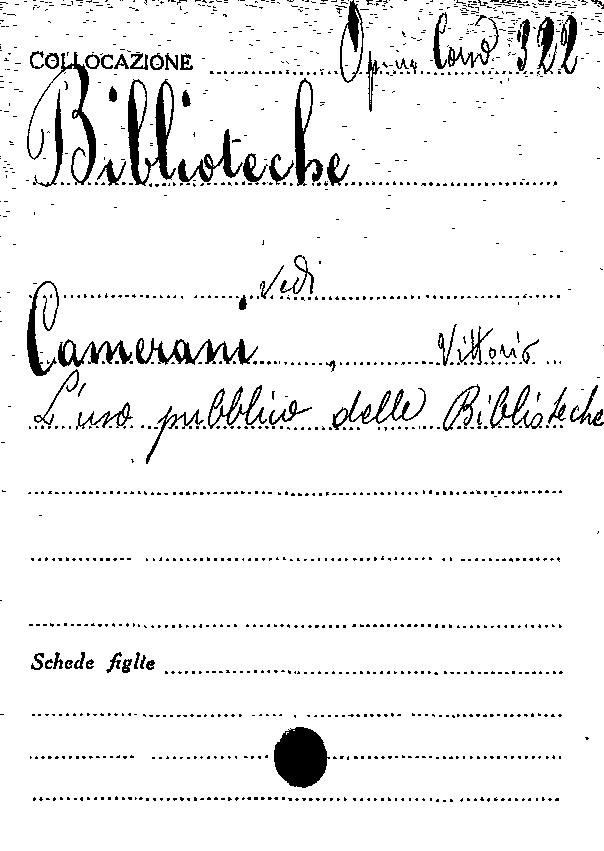 COLLOCAZIONE Cons 322
Biblioteche
Vedi
Camerani, Vittorio
L'uso pubblico delle Biblioteche
Schede figlie